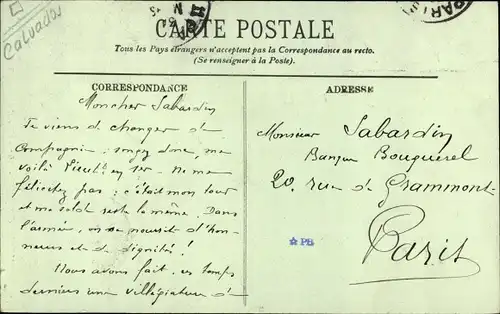 Calvados
CARTE POSTALE
Tous les Pays étrangers n'acceptent pas la Correspondance au recto.
(Se renseigner à la Poste).
CORRESPONDANCE
Mon cher Sabardin
Je viens de changer de
Compagnie : songez donc, me
voilà Lieut. en 1er. Ne me
félicitez pas : c'était mon tour
et ma solde reste la même. Dans
l'armée, on se nourrit d'hon-
neurs et de dignités !
Nous avons fait, ces temps
derniers une villégiature d
ADRESSE
Monsieur Sabardin
Banque Bouquerel
20, rue de Grammont
Paris
PB